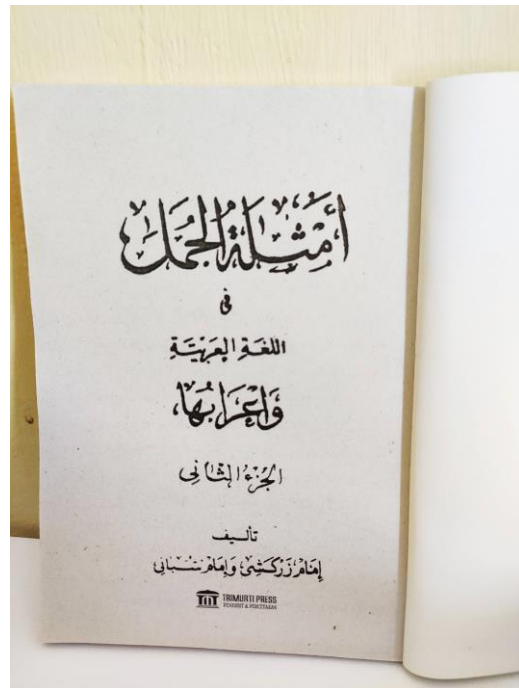 أَمْثِلَةُ الْجُمَلِ
فى
اللغَةِ العَرَبيَّةِ
وَاعْرَابُهَا
الجُزْءُ الثَّانِى
تأليف
إمَام زَرْكَشِى وَإمَام شُبَانِى
TRIMURTI PRESS
PENERBIT & PERCETAKAN